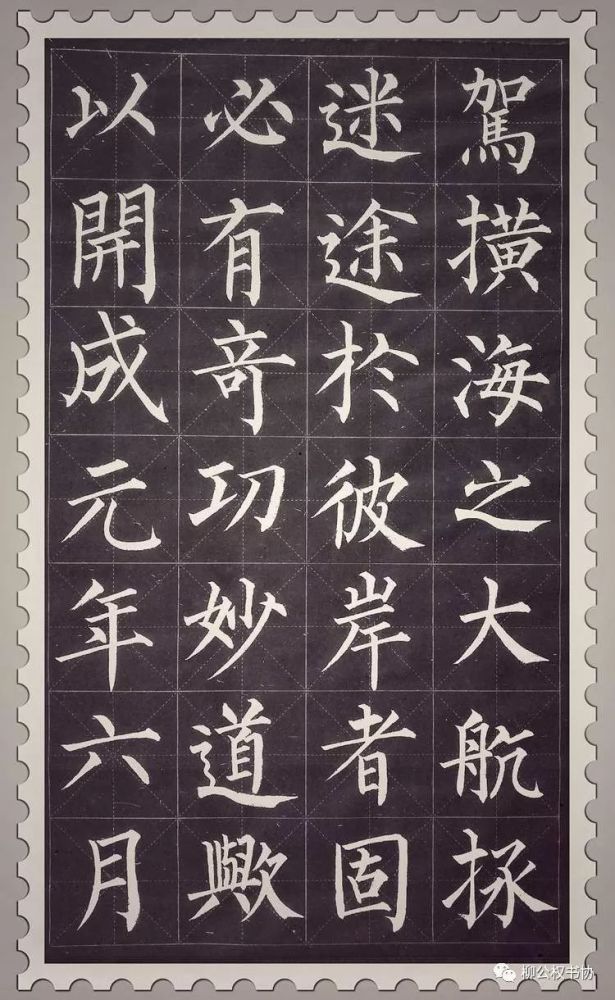 駕撗海之大航拯
迷途於彼岸者固
必有竒功妙道歟
以開成元年六月
柳公权书协